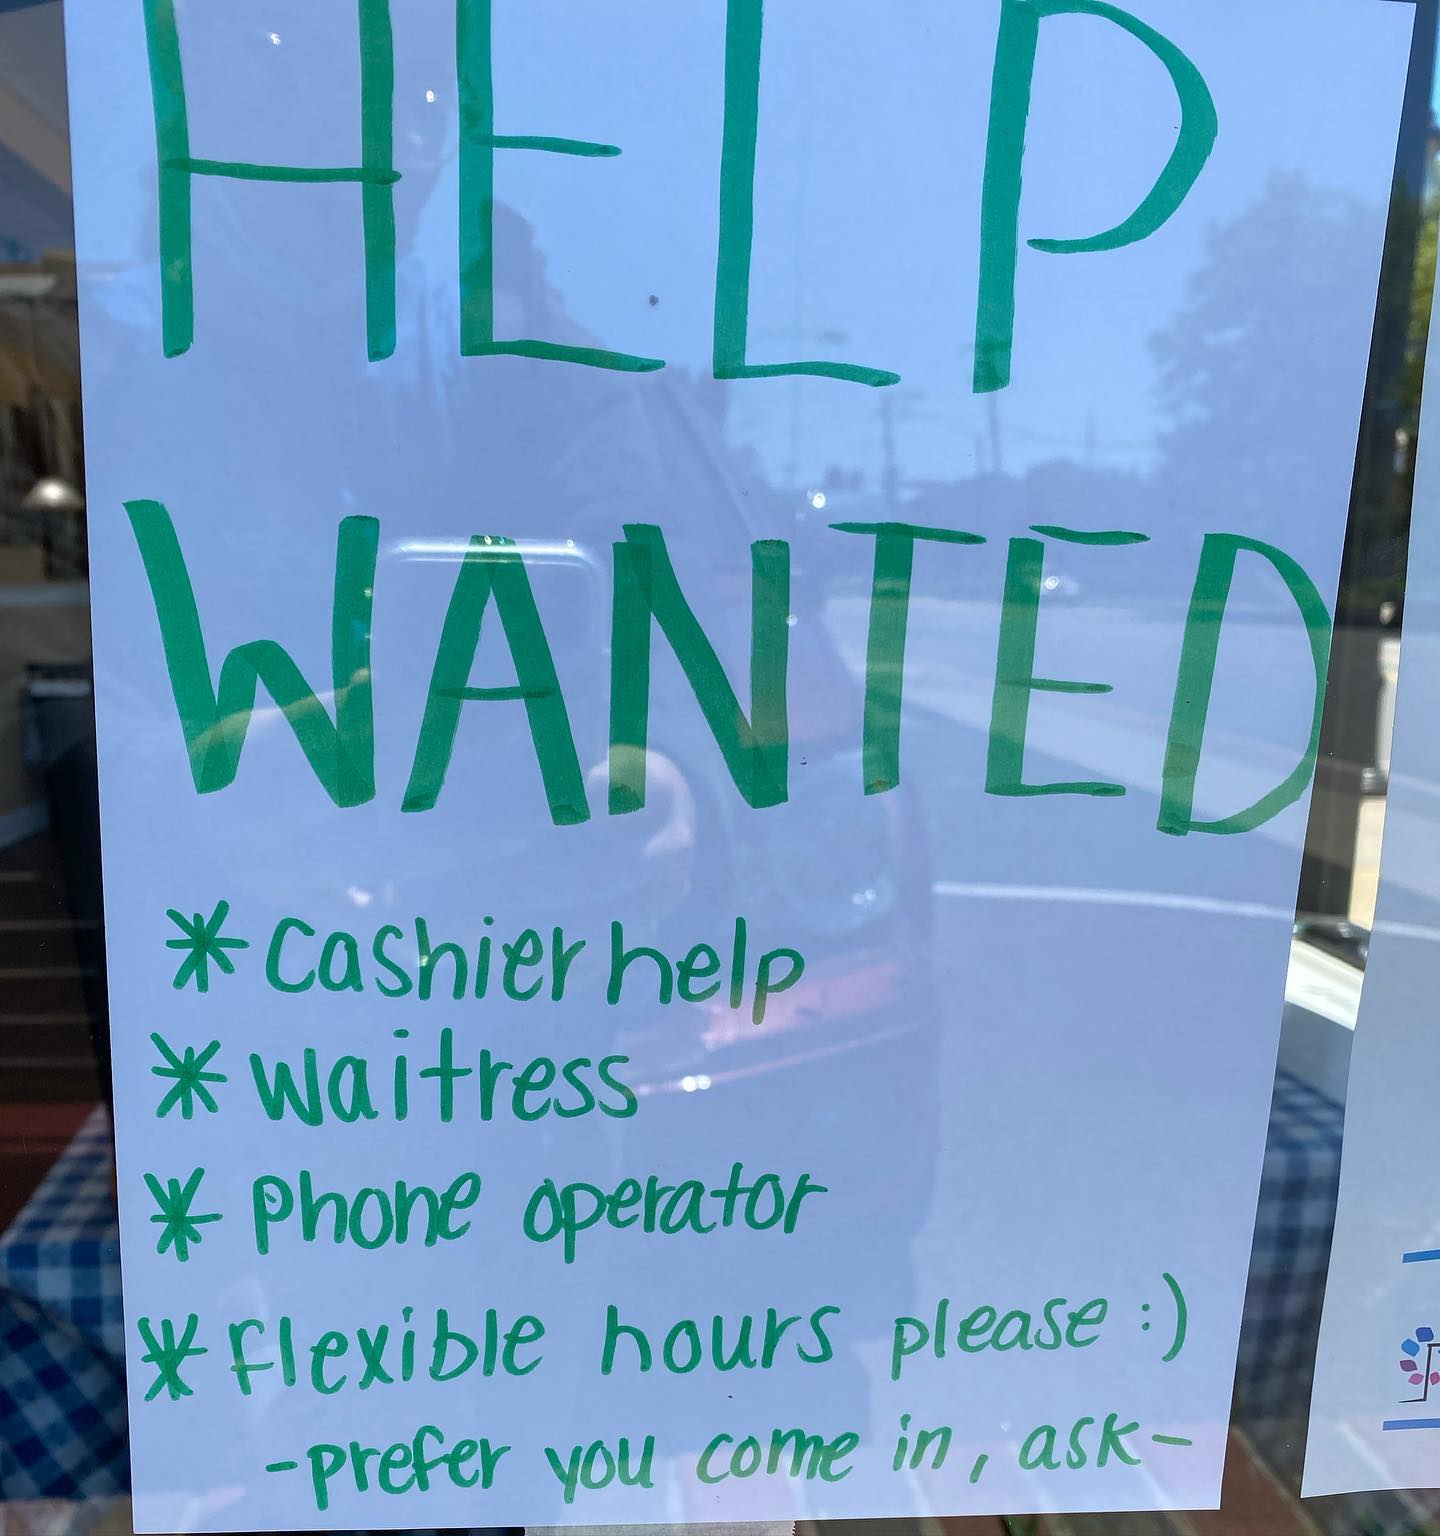 HELP
WANTED
* Cashier help
* Waitress
* Phone operator
* Flexible hours please :)
-prefer you come in, ask-